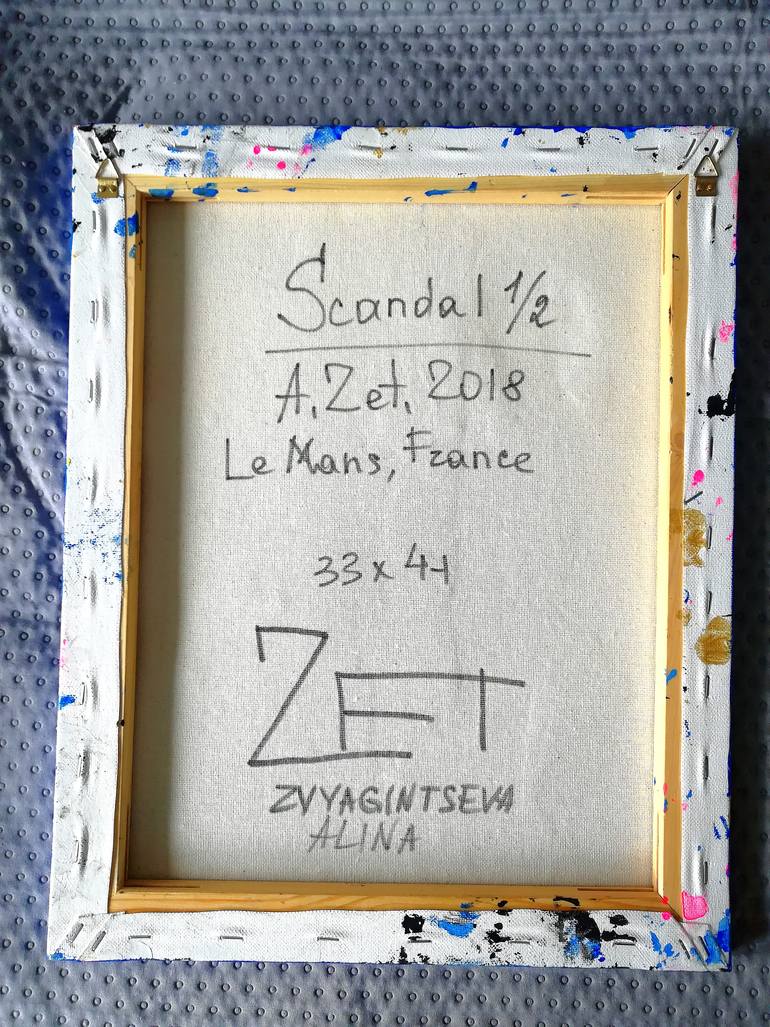 Scandal 1/2
A. Zet, 2018
Le Mans, France
33 x 41
ZET
ZVYAGINTSEVA
ALINA